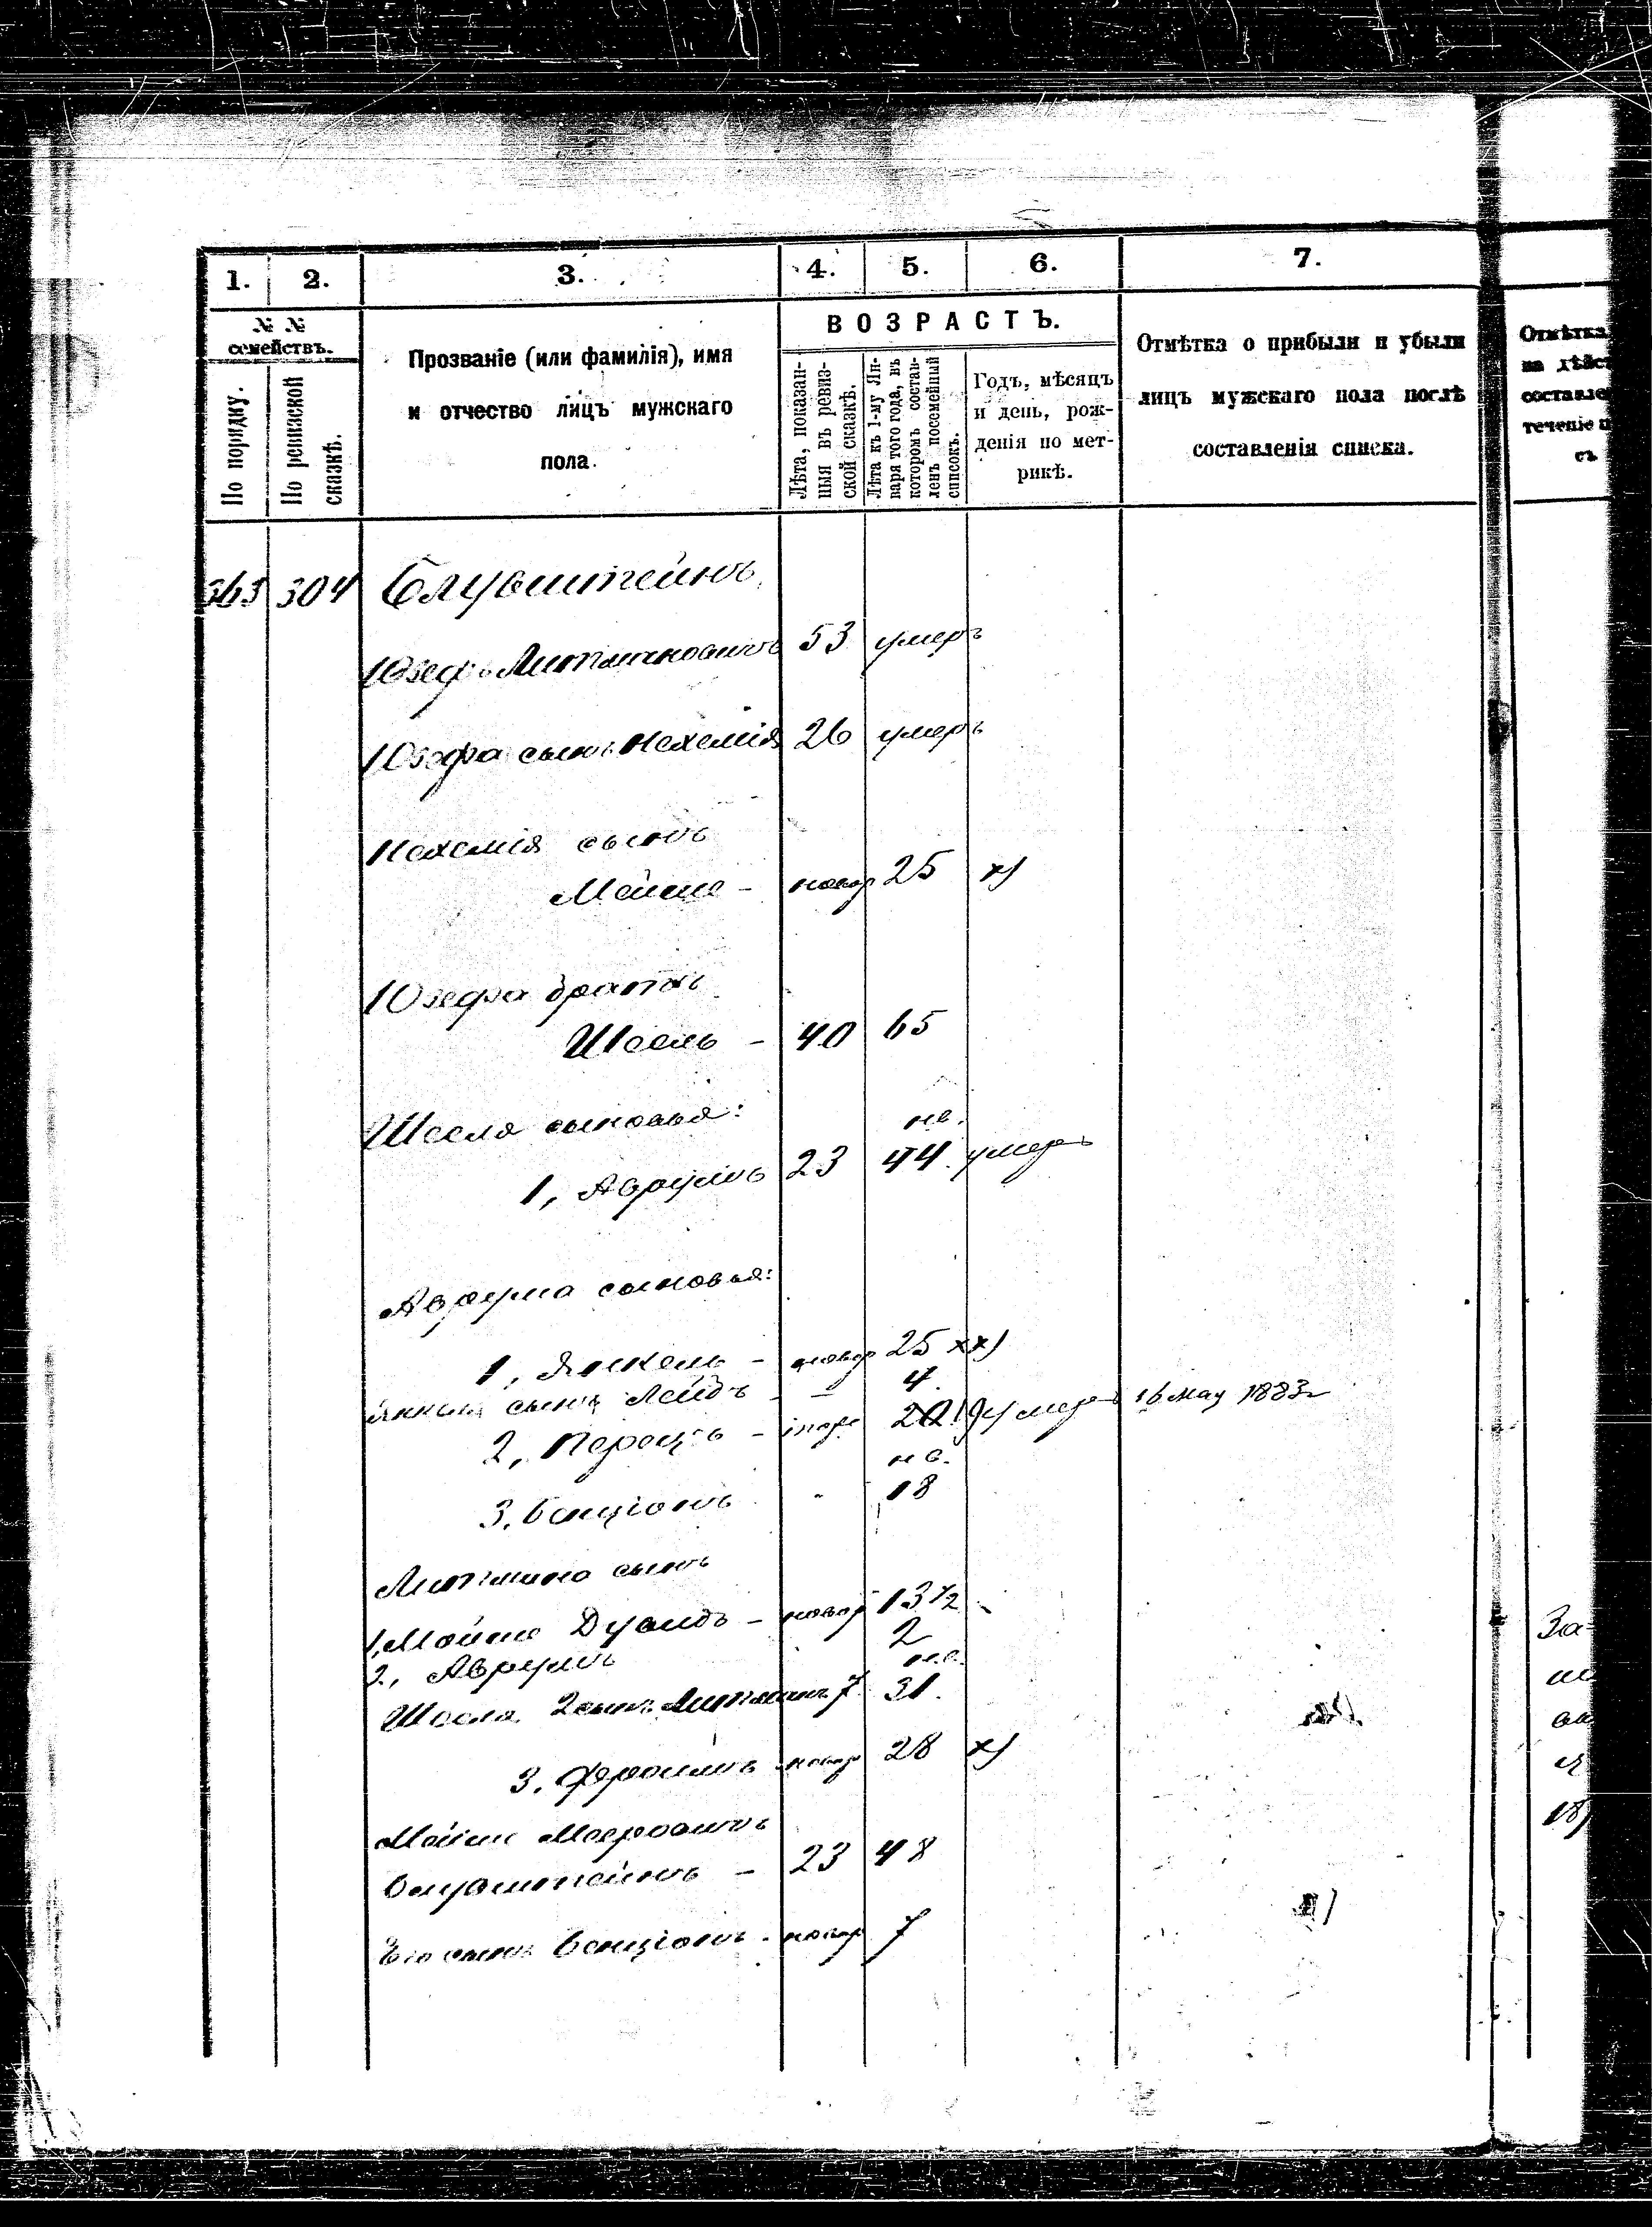 1. 2. 3. 4. 5. 6. 7.
№ №
семействъ.
По порядку.
По ревизской
сказкѣ.
Прозваніе (или фамилія), имя
и отчество лицъ мужскаго
пола.
ВОЗРАСТЪ.
Лѣта, показан-
ныя въ ревиз-
ской сказкѣ.
Лѣта къ 1-му Ян-
варя того года, въ
которомъ состав-
ленъ посемейный
списокъ.
Годъ, мѣсяцъ
и день, рож-
денія по мет-
рикѣ.
Отмѣтка о прибыли и убыли
лицъ мужскаго пола послѣ
составленія списка.
Отмѣтка
на дѣйс
составле
теченіе
съ
363 304 Блувштейнъ
Юзефъ Литмановичъ 53 умеръ
Юзефа сынъ Нехемія 26 умеръ
Нехемія сынъ
Мойше - новор 25 х)
Юзефа братъ
Шеель - 40 65
Шееля сыновья:
нв.
1, Аврумъ 23 44 умеръ
Аврума сыновья:
1, Янкель - новор 25 хх)
Янкеля сынъ Лейбъ - - 4.
2, Перецъ - 20 19 умеръ 16 мая 1883 г
нв.
3, Бенціонъ - 18
Литмана сынъ
1, Мойше Дувидъ - новор 13 1/2
2, Аврумъ 2
нв.
Шееля 2 сынъ Литманъ 7 31.
3. Фроимъ новор 28 х)
Мойше Мееровичъ
Блувштейнъ - 23 48
Его сынъ Бенціонъ - новор 7
За-
18